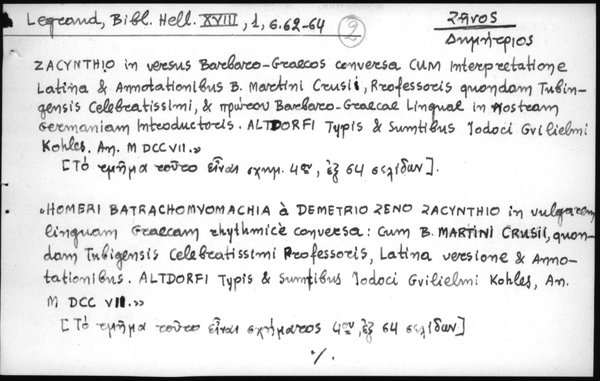 Legrand, Bibl. Hell. XVIII, 1, σ. 62-64 (2) Ζῆνος
Δημήτριος
ZACYNTHIO in versus Barbaro-Graecos conversa CUM Interpretatione
Latina & Annotationibus B. Martini Crusii, Professoris quondam Tubin-
gensis Celebratissimi, & πρώτου Barbaro-Graecae Linguae in Nostram
Germaniam Introductoris. ALTDORFI Typis & Sumtibus Iodoci Gvilielmi
Kohles. An. M DCCVII.»
[Τό τμῆμα τοῦτο εἶναι σχημ. 4ου, ἐξ 64 σελίδων].
«HOMERI BATRACHOMYOMACHIA à DEMETRIO ZENO ZACYNTHIO in vulgarem
linguam Graecam rhythmicè conversa: Cum B. MARTINI CRUSII, quon-
dam Tubigensis Celebratissimi Professoris, Latina versione & Anno-
tationibus. ALTDORFI Typis & Sumtibus Iodoci Gvilielmi Kohles, An.
M DCC VII.»
[Τό τμῆμα τοῦτο εἶναι σχήματος 4ου, ἐξ 64 σελίδων]
·/.